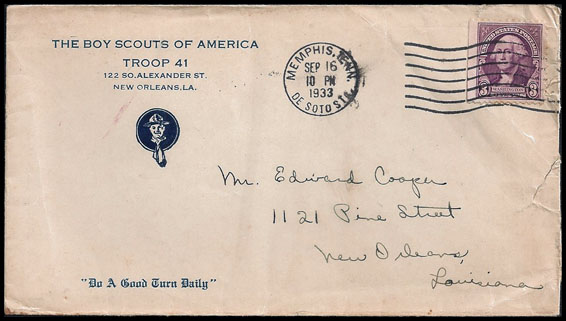 THE BOY SCOUTS OF AMERICA
TROOP 41
122 SO. ALEXANDER ST.
NEW ORLEANS, LA.
MEMPHIS, TENN.
SEP 16
10 PM
1933
DE SOTO STA.
UNITED STATES POSTAGE
3 WASHINGTON 3
Mr. Edward Cooper
1121 Pine Street
New Orleans,
Louisiana
"Do A Good Turn Daily"